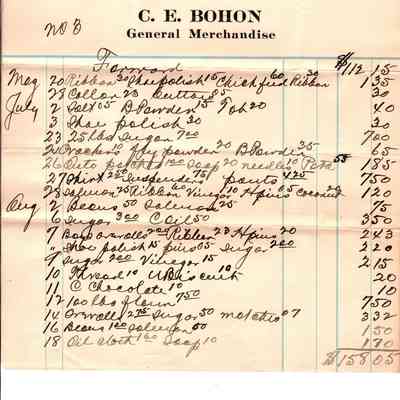 No 3
C. E. BOHON
General Merchandise
Forward $112 15
May 20 Ribbon 20 Shoe polish 15 Chick feed 60 Ribbon 30 1 35
28 Collar 25 Buttons 05 30
July 2 Salt 05 B Powder 15 Tob 20 40
3 Shoe polish 30 30
23 25 lbs Sugar 7 00 7 00
24 Crackers 10 powder 20 B Powder 35 65
26 Soap 20 needles 10 1 85
27 Shirt 2 50 Suspenders 75 pants 4 25 7 50
28 Salmon 25 Ribbon Vinegar 10 Hpins 05 Coconut 1 20
Aug 2 Beans 50 Salmon 25 75
6 Sugar 3 00 C Oil 50 3 50
7 Boys overalls 2 00 Ribbon 23 Hpins 20 2 43
" Shoe polish 15 pins 05 Sugar 2 00 2 20
9 Sugar 2 00 Vinegar 15 2 15
10 Thread 10 U Biscuit 10 20
11 C Chocolate 10 10
12 100 lbs flour 7 50 7 50
14 Overalls 2 75 Sugar 50 matches 07 3 32
16 Beans 1 00 Salmon 50 1 50
18 Oil cloth 1 60 Soap 10 1 70
$158 05